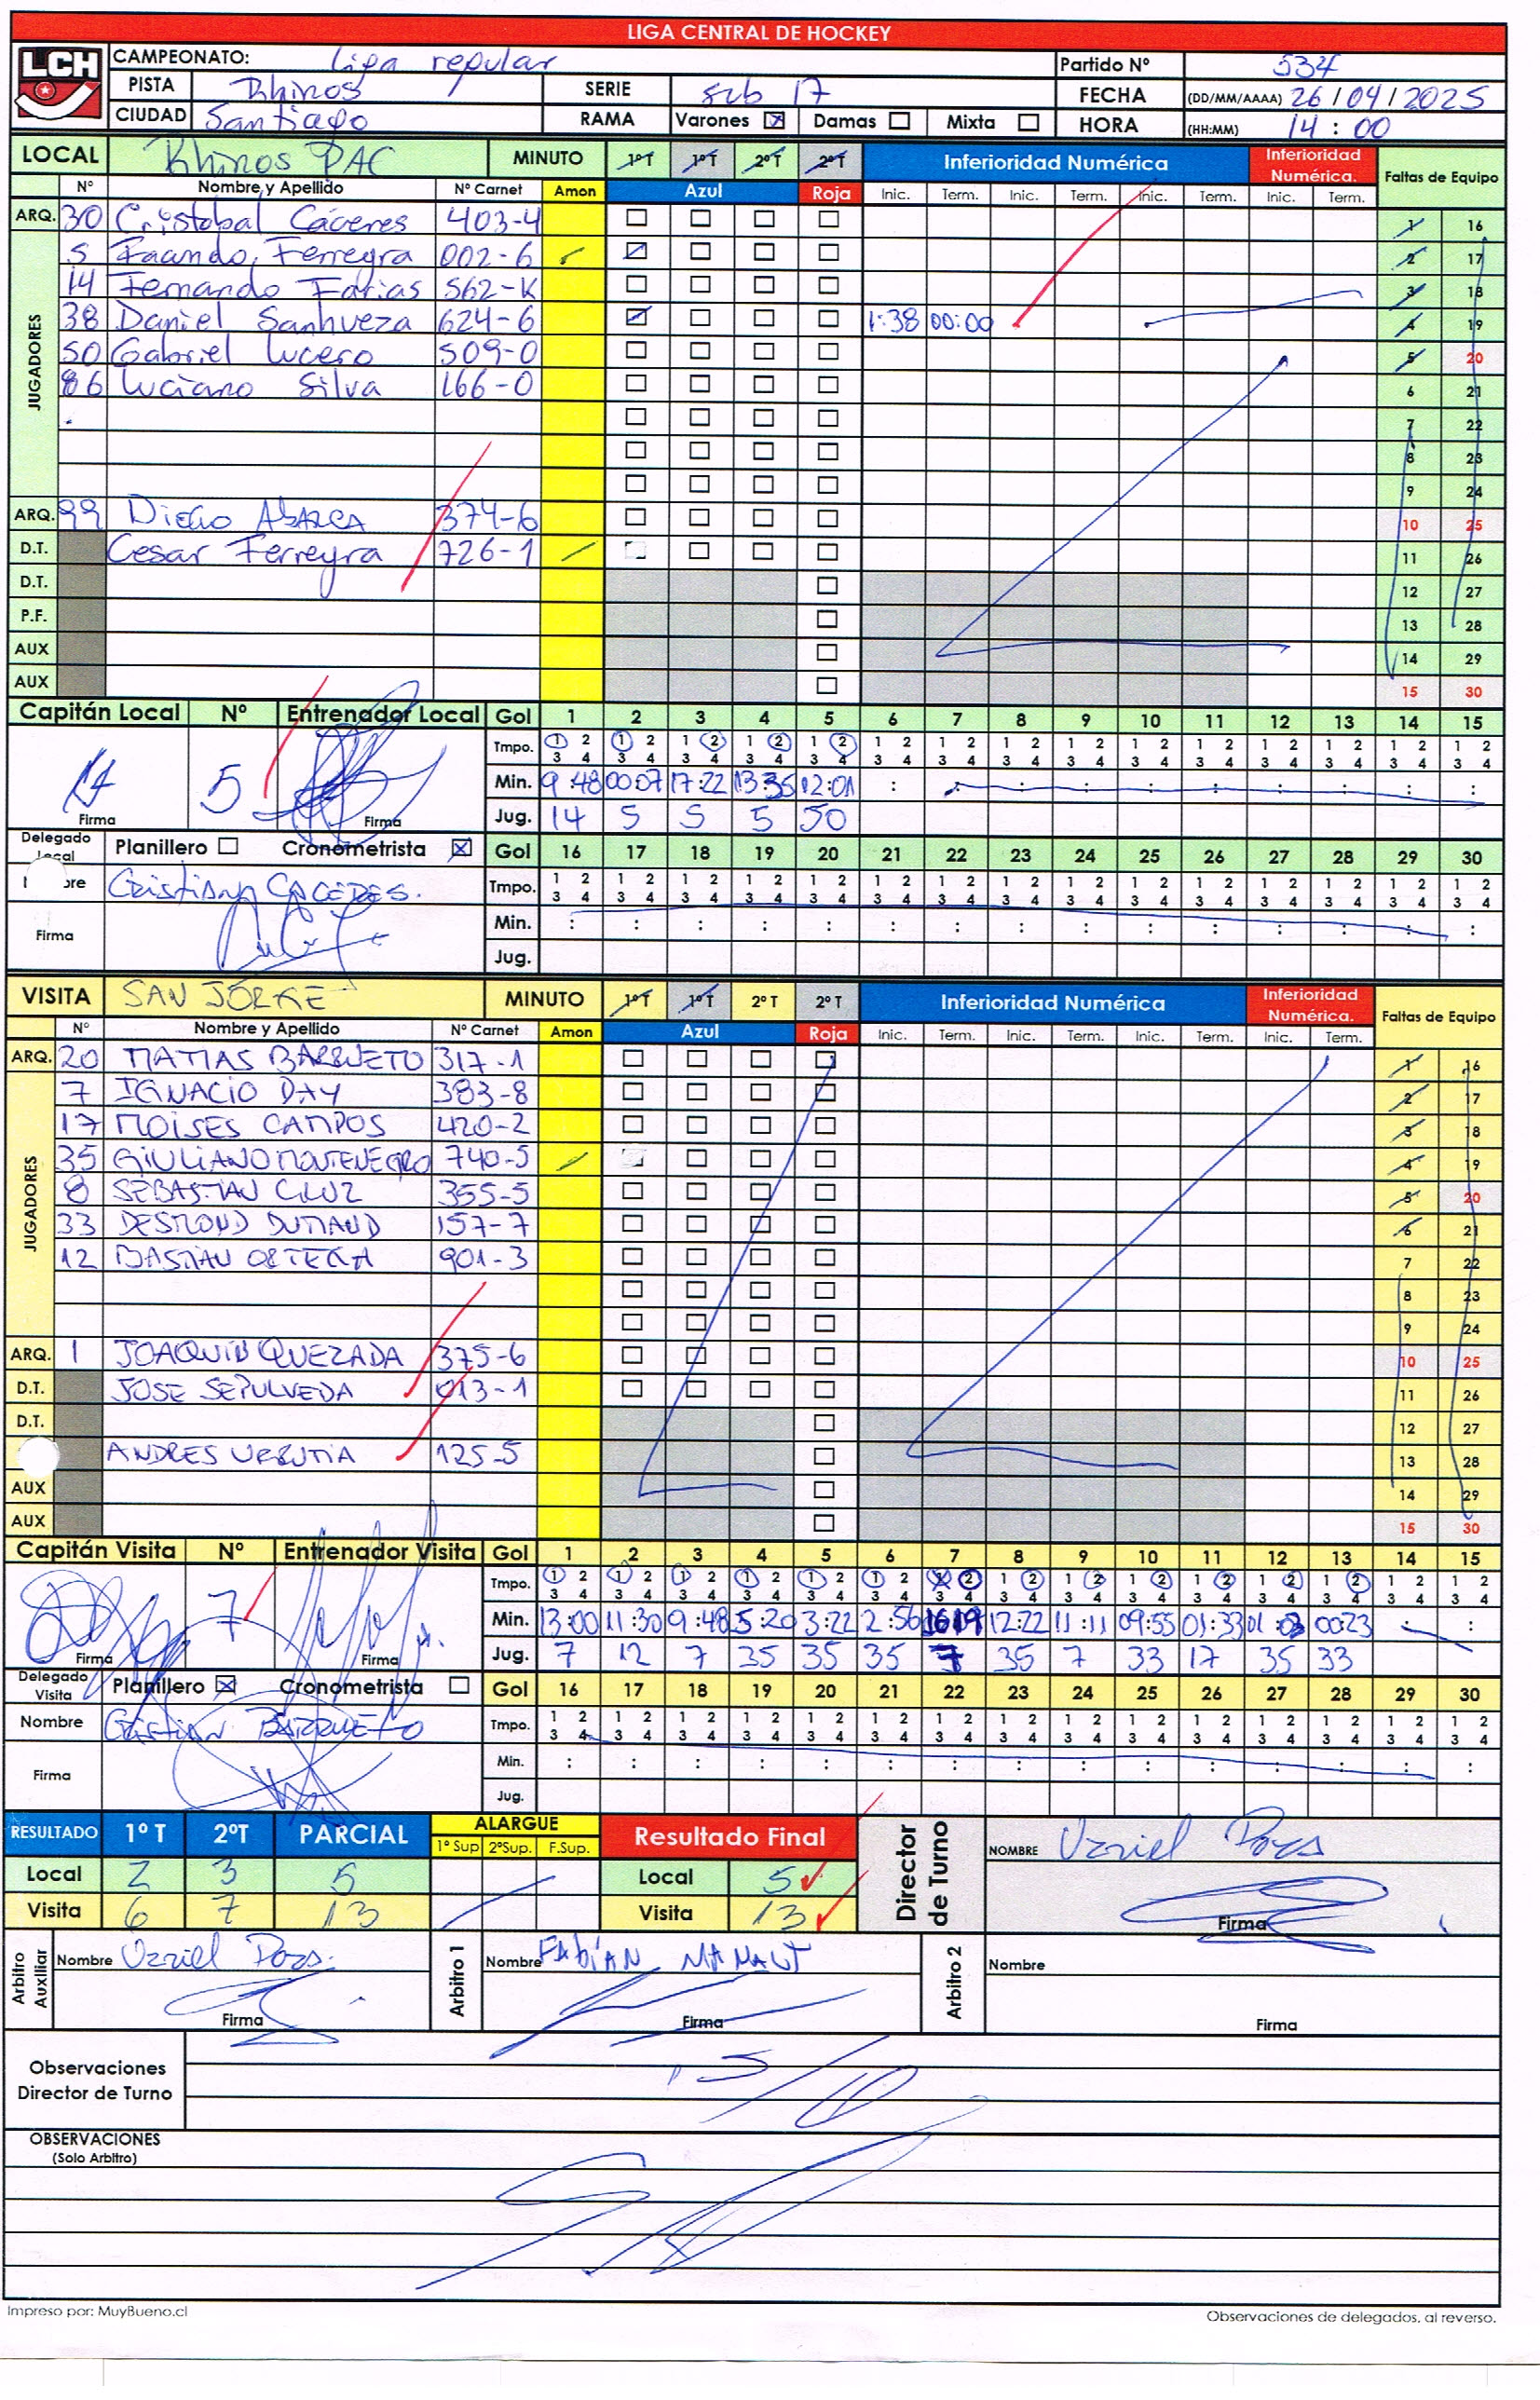 LIGA CENTRAL DE HOCKEY
LCH
CAMPEONATO: Liga regular Partido Nº 534
PISTA Rhinos SERIE sub 17 FECHA (DD/MM/AAAA) 26/04/2025
CIUDAD Santiago RAMA Varones ☒ Damas ☐ Mixta ☐ HORA (HH:MM) 14:00
LOCAL Rhinos PAC MINUTO 1º T 1º T 2º T 2º T Inferioridad Numérica Inferioridad Numérica. Faltas de Equipo
Nº Nombre y Apellido Nº Carnet Amon Azul Roja Inic. Term. Inic. Term. Inic. Term. Inic. Term.
ARQ. 30 Cristobal Cáceres 403-4 1 16
JUGADORES
5 Facundo Ferreyra 002-6 2 17
14 Fernando Farias 562-K 3 18
38 Daniel Sanhueza 624-6 1:38 00:00 4 19
50 Gabriel Lucero 509-0 5 20
86 Luciano Silva 166-0 6 21
7 22
8 23
9 24
ARQ. 99 Diego Abarca 374-6 10 25
D.T. Cesar Ferreyra 726-1 11 26
D.T. 12 27
P.F. 13 28
AUX 14 29
AUX 15 30
Capitán Local Nº Entrenador Local Gol 1 2 3 4 5 6 7 8 9 10 11 12 13 14 15
Tmpo. 1 2 3 4 1 2 3 4 1 2 3 4 1 2 3 4 1 2 3 4 1 2 3 4 1 2 3 4 1 2 3 4 1 2 3 4 1 2 3 4 1 2 3 4 1 2 3 4 1 2 3 4 1 2 3 4 1 2 3 4
5 Min. 9:48 00:07 17:22 13:35 12:01 : : : : : : : : : :
Firma Firma Jug. 14 5 5 5 50
Delegado Local Planillero ☐ Cronometrista ☒ Gol 16 17 18 19 20 21 22 23 24 25 26 27 28 29 30
Cristian CACERES. Tmpo. 1 2 3 4 1 2 3 4 1 2 3 4 1 2 3 4 1 2 3 4 1 2 3 4 1 2 3 4 1 2 3 4 1 2 3 4 1 2 3 4 1 2 3 4 1 2 3 4 1 2 3 4 1 2 3 4 1 2 3 4
Firma Min. : : : : : : : : : : : : : : :
Jug.
VISITA SAN JORGE MINUTO 1º T 1º T 2º T 2º T Inferioridad Numérica Inferioridad Numérica. Faltas de Equipo
Nº Nombre y Apellido Nº Carnet Amon Azul Roja Inic. Term. Inic. Term. Inic. Term. Inic. Term.
ARQ. 20 MATIAS BARRUETO 317-1 1 16
JUGADORES
7 IGNACIO DAY 383-8 2 17
17 MOISES CAMPOS 420-2 3 18
35 GIULIANO MONTENEGRO 740-5 4 19
8 SEBASTIAN CRUZ 355-5 5 20
33 DESMOND DUMAND 157-7 6 21
12 BASTIAN ORTEGA 901-3 7 22
8 23
9 24
ARQ. 1 JOAQUIN QUEZADA 375-6 10 25
D.T. JOSE SEPULVEDA 013-1 11 26
D.T. 12 27
ANDRES URRUTIA 125-5 13 28
AUX 14 29
AUX 15 30
Capitán Visita Nº Entrenador Visita Gol 1 2 3 4 5 6 7 8 9 10 11 12 13 14 15
Tmpo. 1 2 3 4 1 2 3 4 1 2 3 4 1 2 3 4 1 2 3 4 1 2 3 4 1 2 3 4 1 2 3 4 1 2 3 4 1 2 3 4 1 2 3 4 1 2 3 4 1 2 3 4 1 2 3 4 1 2 3 4
7 Min. 13:00 11:30 9:48 5:20 3:22 2:56 16:19 12:22 11:11 09:55 01:33 00:23 : :
Firma Firma Jug. 7 12 7 35 35 35 7 35 7 33 17 35 33
Delegado Visita Planillero ☒ Cronometrista ☐ Gol 16 17 18 19 20 21 22 23 24 25 26 27 28 29 30
Nombre Cristian BARRUETO Tmpo. 1 2 3 4 1 2 3 4 1 2 3 4 1 2 3 4 1 2 3 4 1 2 3 4 1 2 3 4 1 2 3 4 1 2 3 4 1 2 3 4 1 2 3 4 1 2 3 4 1 2 3 4 1 2 3 4 1 2 3 4
Firma Min. : : : : : : : : : : : : : : :
Jug.
RESULTADO 1º T 2ºT PARCIAL ALARGUE 1º Sup 2ºSup. F.Sup. Resultado Final Director de Turno NOMBRE Uzriel Pozs
Local 2 3 5 Local 5
Visita 6 7 13 Visita 13 Firma
Arbitro Auxiliar Nombre Uzriel Pozs. Arbitro 1 Nombre FABIAN Arbitro 2 Nombre
Firma Firma Firma
Observaciones
Director de Turno
OBSERVACIONES
(Solo Arbitro)
Impreso por: MuyBueno.cl Observaciones de delegados, al reverso.